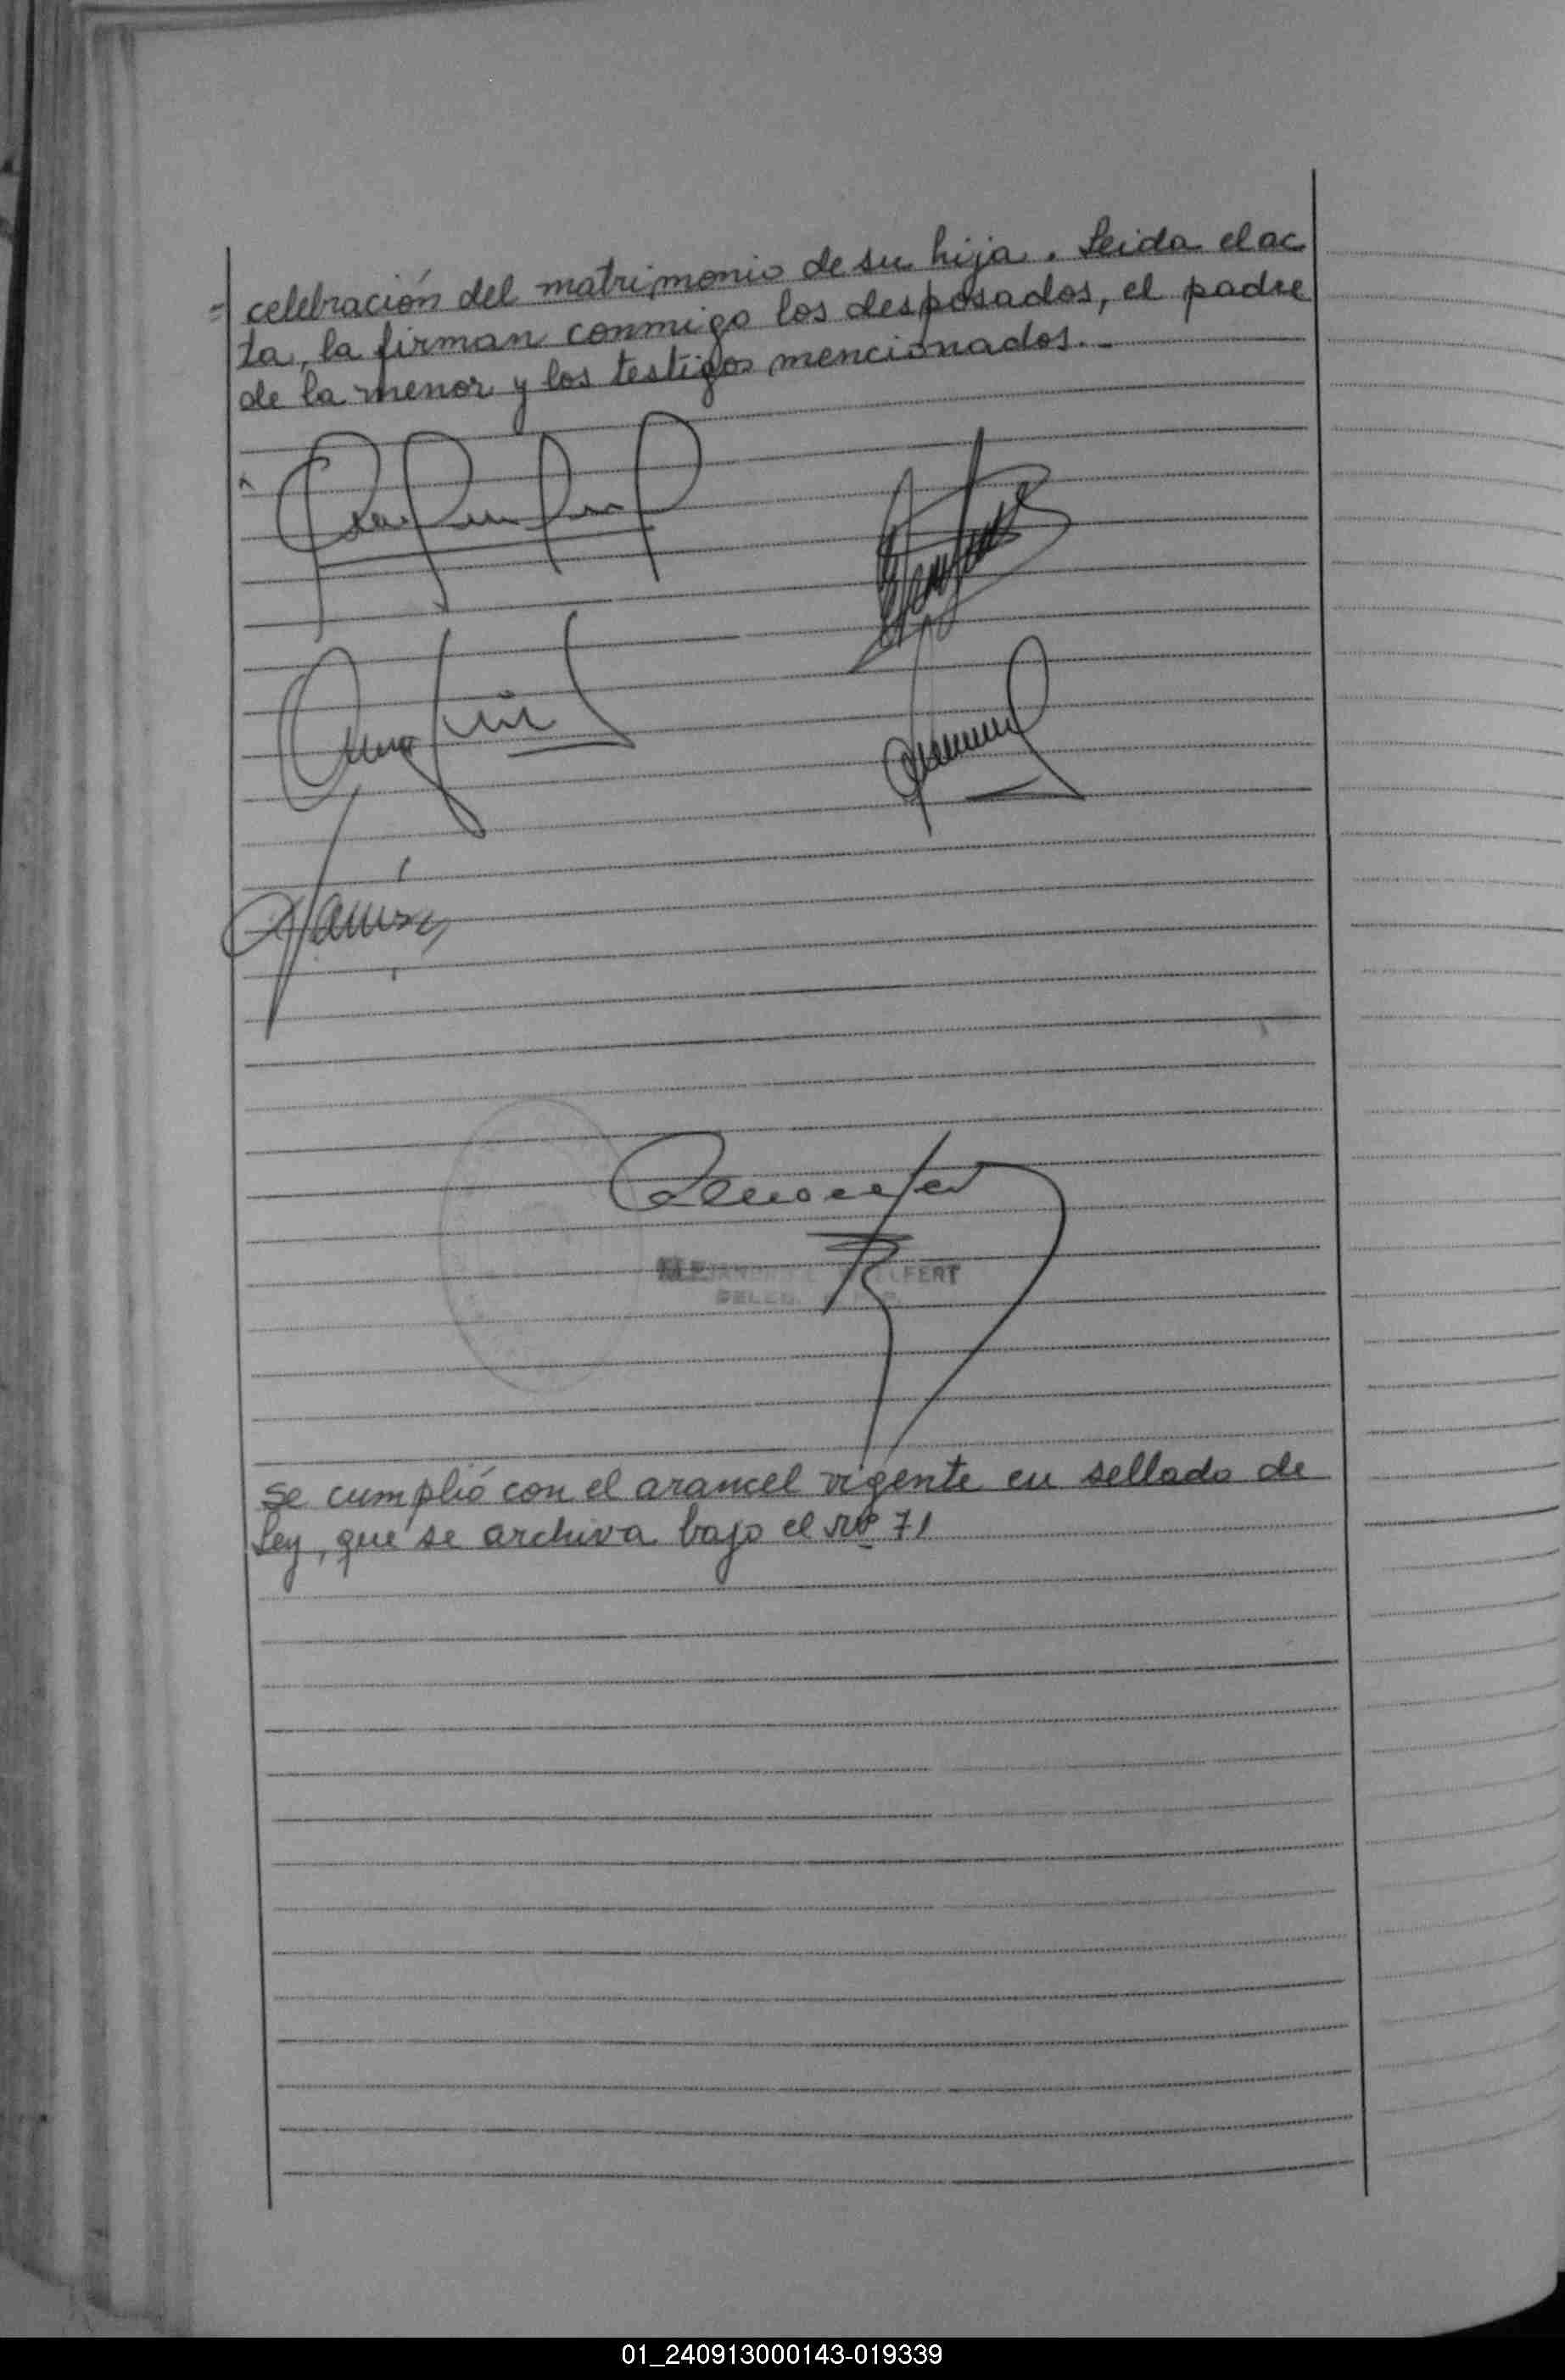 = celebración del matrimonio de su hija. Leida el ac
ta, la firman conmigo los desposados, el padre
de la menor y los testigos mencionados.-
ELFERT
DELEG.
Se cumplió con el arancel vigente en sellado de
Ley, que se archiva bajo el Nº 71
01_240913000143-019339